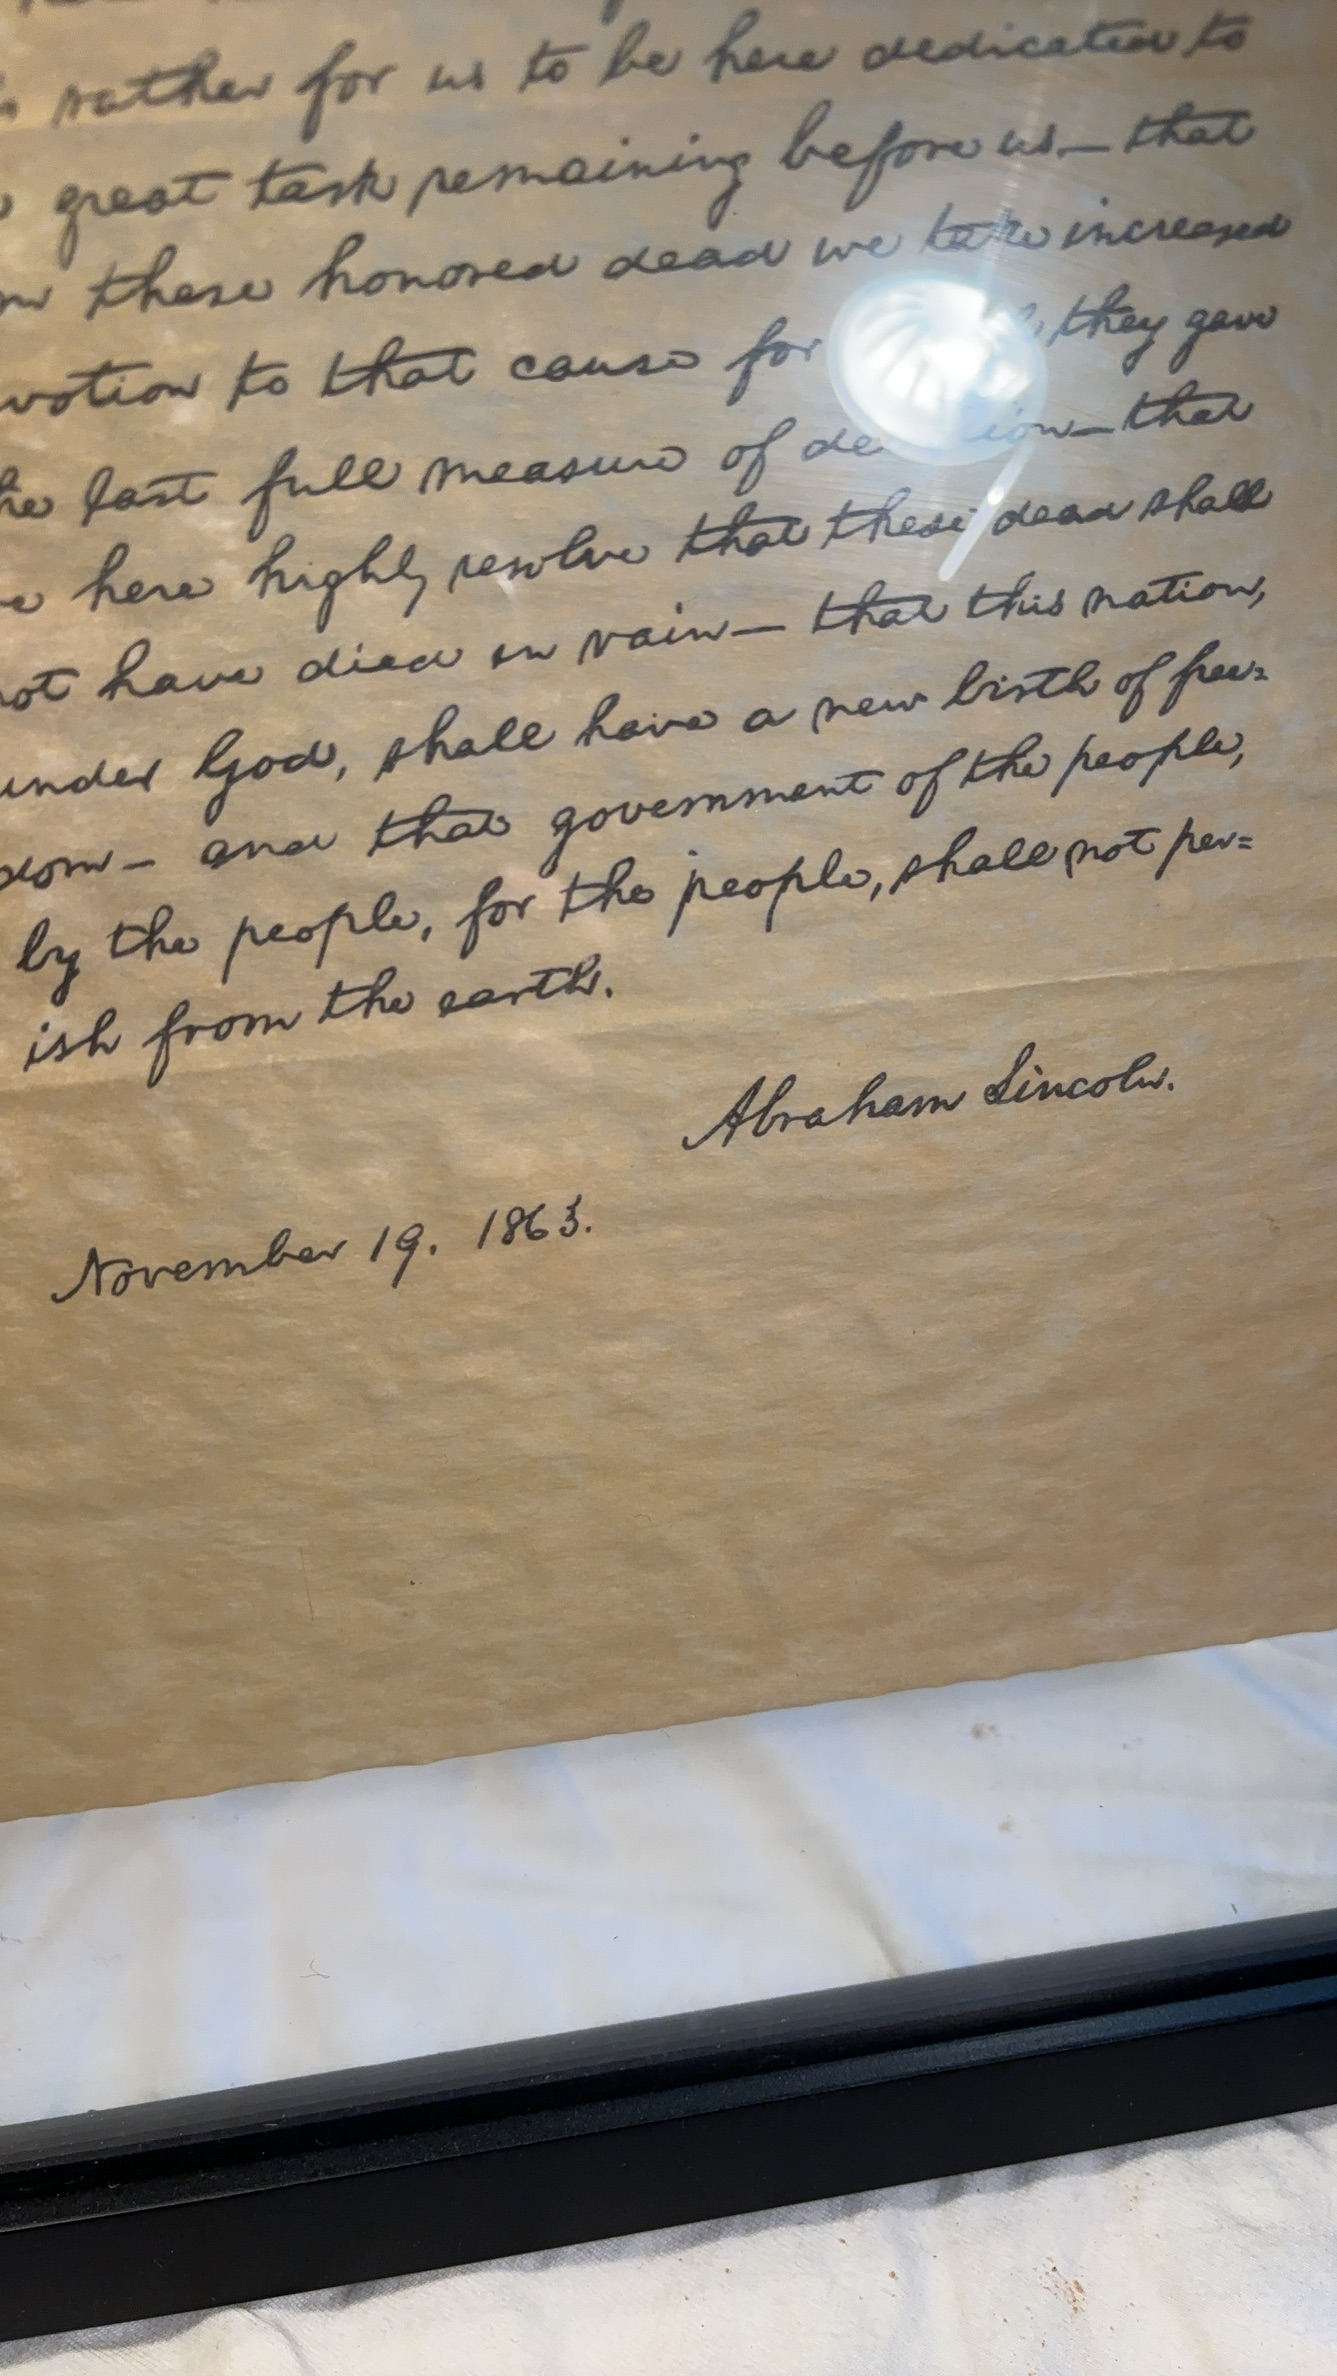 rather for us to be here dedicated to
great task remaining before us — that
these honored dead we take increased
votion to that cause for they gave
he last full measure of de ion — that
here highly resolve that these dead shall
not have died in vain — that this nation,
under God, shall have a new birth of free=
dom — and that government of the people,
by the people, for the people, shall not per=
ish from the earth.
Abraham Lincoln.
November 19. 1863.